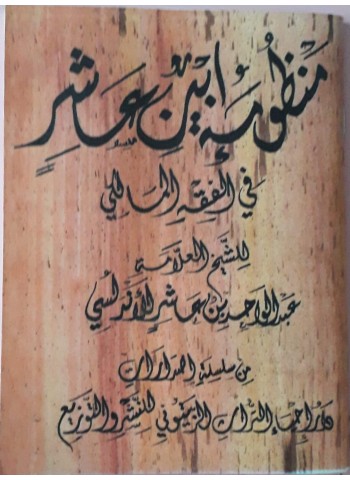 منظومة إبن عاشر
في الفقه المالكي
للشيخ العلامة
عبد الواحد بن عاشر الأندلسي
من سلسلة إصدارات
دار إحياء التراث الزيتوني للنشر والتوزيع